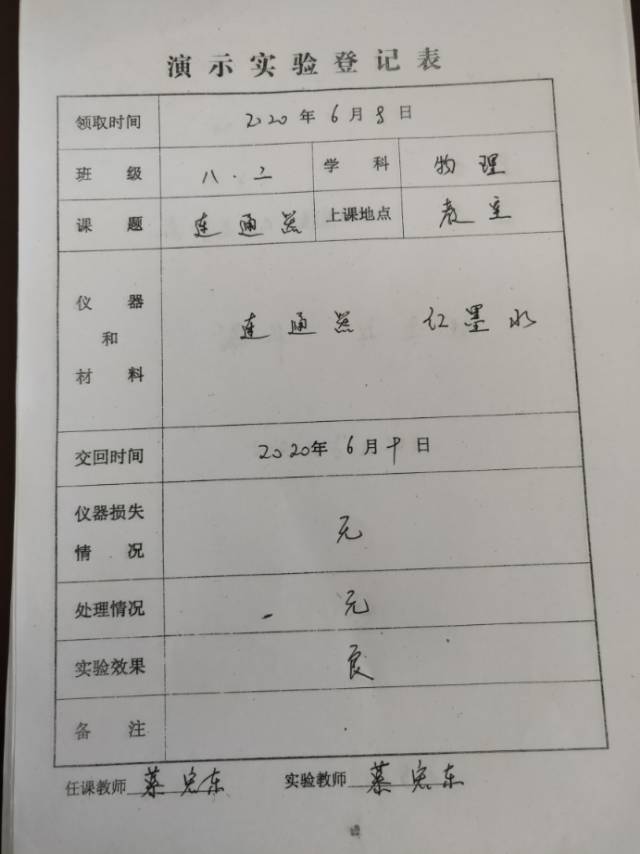 演示实验登记表
领取时间 2020年6月8日
班级 八.二 学科 物理
课题 连通器 上课地点 教室
仪器
和 连通器 红墨水
材料
交回时间 2020年6月 日
仪器损失
情况 无
处理情况 无
实验效果 良
备注
任课教师 宏东 实验教师 宏东